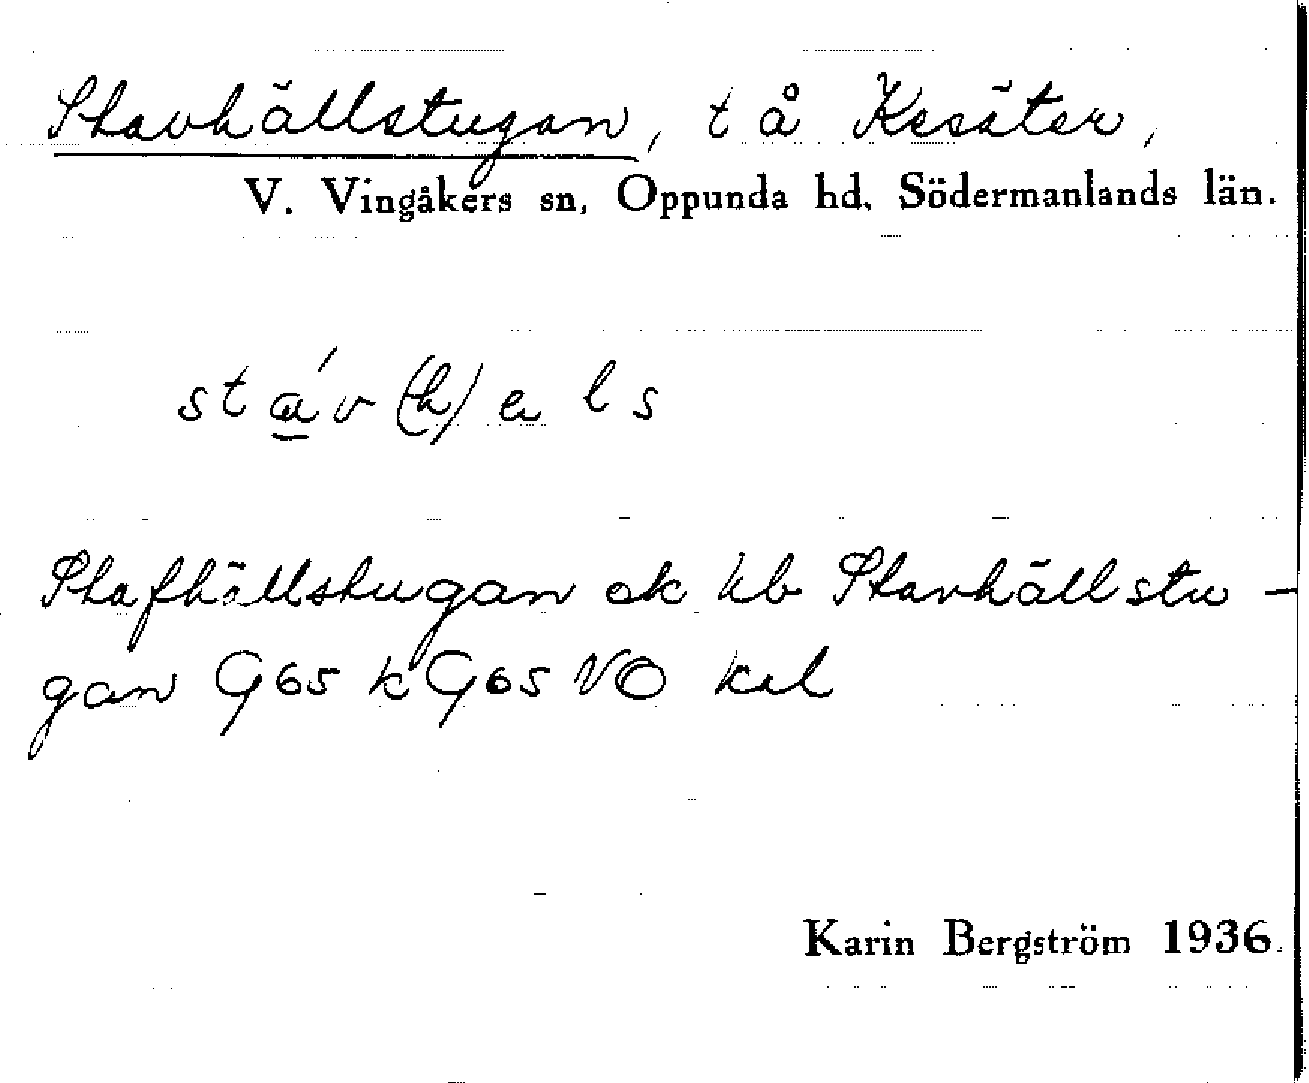 Stavhällstugan, t å Kesäter,
V. Vingåkers sn, Oppunda hd, Södermanlands län.
stáv(h)els
Stafhällstugan ek hb Stavhällstu-
gan G65 k G65 VO kal
Karin Bergström 1936.